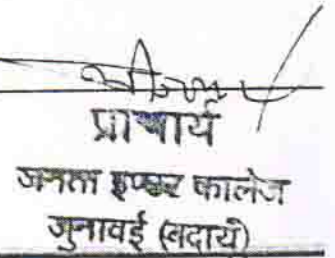 प्राचार्य
जनता इण्टर कालेज
जुनावई (बदायूं)